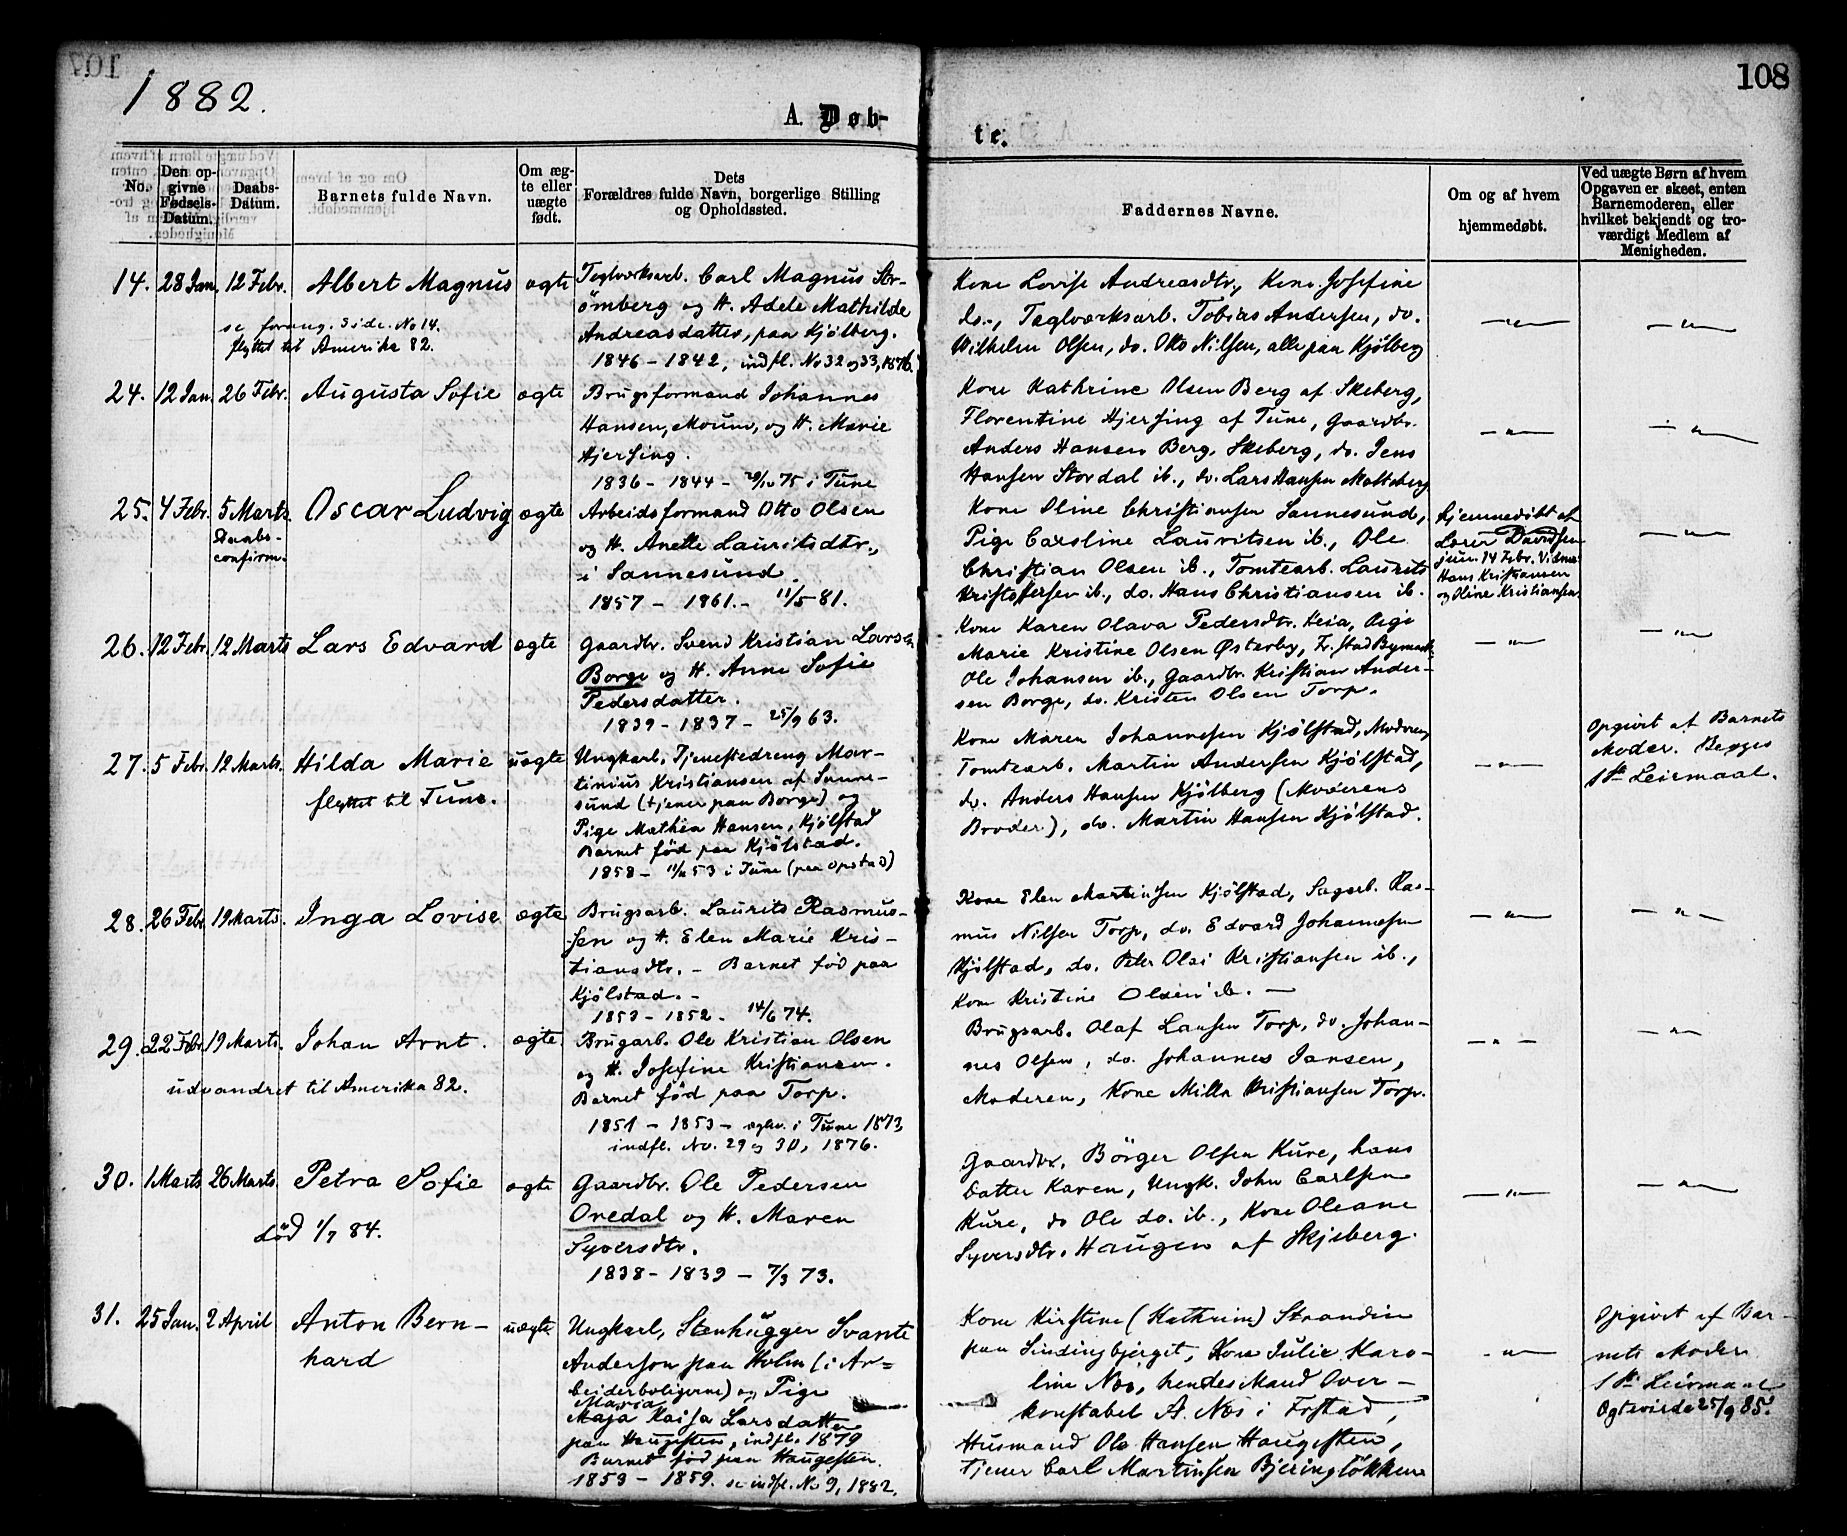 1882.
108
A. Døb-
te.
No.
Den op-
givne
Fødsels-
Datum.
Daabs-
Datum.
Barnets fulde Navn.
Om æg-
te eller
uægte
født.
Dets
Forældres fulde Navn, borgerlige Stilling
og Opholdssted.
Faddernes Navne.
Om og af hvem
hjemmedøbt.
Ved uægte Børn af hvem
Opgaven er skeet, enten
Barnemoderen, eller
hvilket bekjendt og tro-
værdigt Medlem af
Menigheden.
14. 28 Jan. 12 Febr. Albert Magnus ægte
se forang. Side. No 14.
flyttet til Amerika 82.
Teglværksarb. Carl Magnus Str-
ømberg og H. Adele Mathilde
Andreasdatter, paa Kjølberg.
1846 - 1842, indfl. No 32 og 33, 1876.
Kone Lovise Andreasdtr., Kone Josefine
do., Teglværksarb. Tobias Andersen, do.
Wilhelm Olsen, do. Otto Nilsen, alle paa Kjølberg
24. 12 Jan. 26 Febr. Augusta Sofie ægte
Brugsformand Johannes
Hansen, Moum, og H. Marie
Hjersing.
1836 - 1844 - 29/10 75 i Tune
Kone Kathrine Olsen Berg af Skeberg,
Florentine Hjersing af Tune, Gaardbr.
Anders Hansen Berg, Skeberg, do. Jens
Hansen Stordal ib., do. Lars Hansen
25. 4 Febr. 5 Marts Oscar Ludvig ægte
Daabs-
confirm.
Arbeidsformand Otto Olsen
og H. Anette Lauritsdtr.,
i Sannesund.
1857 - 1861. - 11/5 81.
Kone Oline Christiansen Sannesund,
Pige Caroline Lauritsen ib., Ole
Christian Olsen ib., Tomtearb. Laurits
Kristoffersen ib., do. Hans Christiansen ib.
Hjemmedøbt af
Davidsen
jun. 14 Febr. Vidner
Hans Kristiansen
og Oline Kristiansen
26. 12 Febr. 12 Marts Lars Edvard ægte
Gaardbr. Svend Kristian Larsen
Borge og H. Anne Sofie
Pedersdatter.
1839 - 1837 - 25/9 63.
Kone Karen Olava Pedersdtr. Heia, Pige
Marie Kristine Olsen Østerby, Fr.stad Bymark
Ole Johansen ib., Gaardbr. Kristian Ander-
sen Borge, do. Kristen Olsen Torp.
27. 5 Febr. 12 Marts. Hilda Marie uægte
flyttet til Tune.
Ungkarl, Tjenestedreng Mar-
tinius Kristiansen af Sanne-
sund (tjener paa Borge) og
Pige Mathea Hansen, Kjølstad
Barnet født paa Kjølstad.
1858 - 11/11 53 i Tune (paa Opstad)
Kone Maren Johannesen Kjølstad, Moderen,
Tomtearb. Martin Andersen Kjølstad,
do. Anders Hansen Kjølberg (Moderens
Broder), do. Martin Hansen Kjølstad.
Opgivet af Barnets
Moder. Begges
1ste Leiermaal.
28. 26 Febr. 19 Marts. Inga Lovise ægte
Brugsarb. Laurits Rasmus-
sen og H. Elen Marie Kris-
tiansdtr. - Barnet fød paa
Kjølstad. -
1853 - 1852 - 14/6 74.
Kone Elen Martinsen Kjølstad, Sagarb. Ras-
mus Nilsen Torp, do. Edvard Johannesen
Kjølstad, do. Peter Olai Kristiansen ib.,
Kone Kristine Olsen ib. -
29. 22 Febr. 19 Marts. Johan Arnt. ægte
udvandret til Amerika 82.
Brugarb. Ole Kristian Olsen
og H. Josefine Kristiansen.
Barnet fød paa Torp.
1851 - 1853 - i Tune 1873
indfl. No. 29 og 30, 1876.
Brugsarb. Olaf Lansen Torp, do. Johan-
nes Olsen, do. Johannes Jansen,
Moderen, Kone Milla Kristiansen Torp.
30. 1 Marts 26 Marts. Petra Sofie ægte
død 1/7 84.
Gaardbr. Ole Pedersen
Oredal og H. Maren
Syversdtr.
1838 - 1839 - 7/3 73.
Gaardbr. Börger Olsen Kure, hans
Datter Karen, Ungk. John Carlsen
Kure, do Ole do. ib., Kone Oleane
Syversdtr. Haugen af Skjeberg.
31. 25 Jan. 2 April Anton Bern- uægte
hard
Ungkarl, Stenhugger Svante
Anderson paa Holm (i Ar-
beiderboligerne) og Pige
Maria
Maja Kaisa Larsdatter
paa Haugesten, indfl. 1879
Barnet fød paa Haugesten.
1853 - 1859. se indfl. No 9, 1882.
Kone Kirstine (Kathrine) Strandin
paa Sindingbjerget, Kone Julie Karo-
line Nes, hendes Mand Over-
konstabel A. Nes i Frstad,
Husmand Ole Hansen Haugesten,
Tjener Carl Martinsen Bjeringløkken
Opgivet af Bar-
nets Moder
1ste Leiermaal
Egteviede 25/9 85.